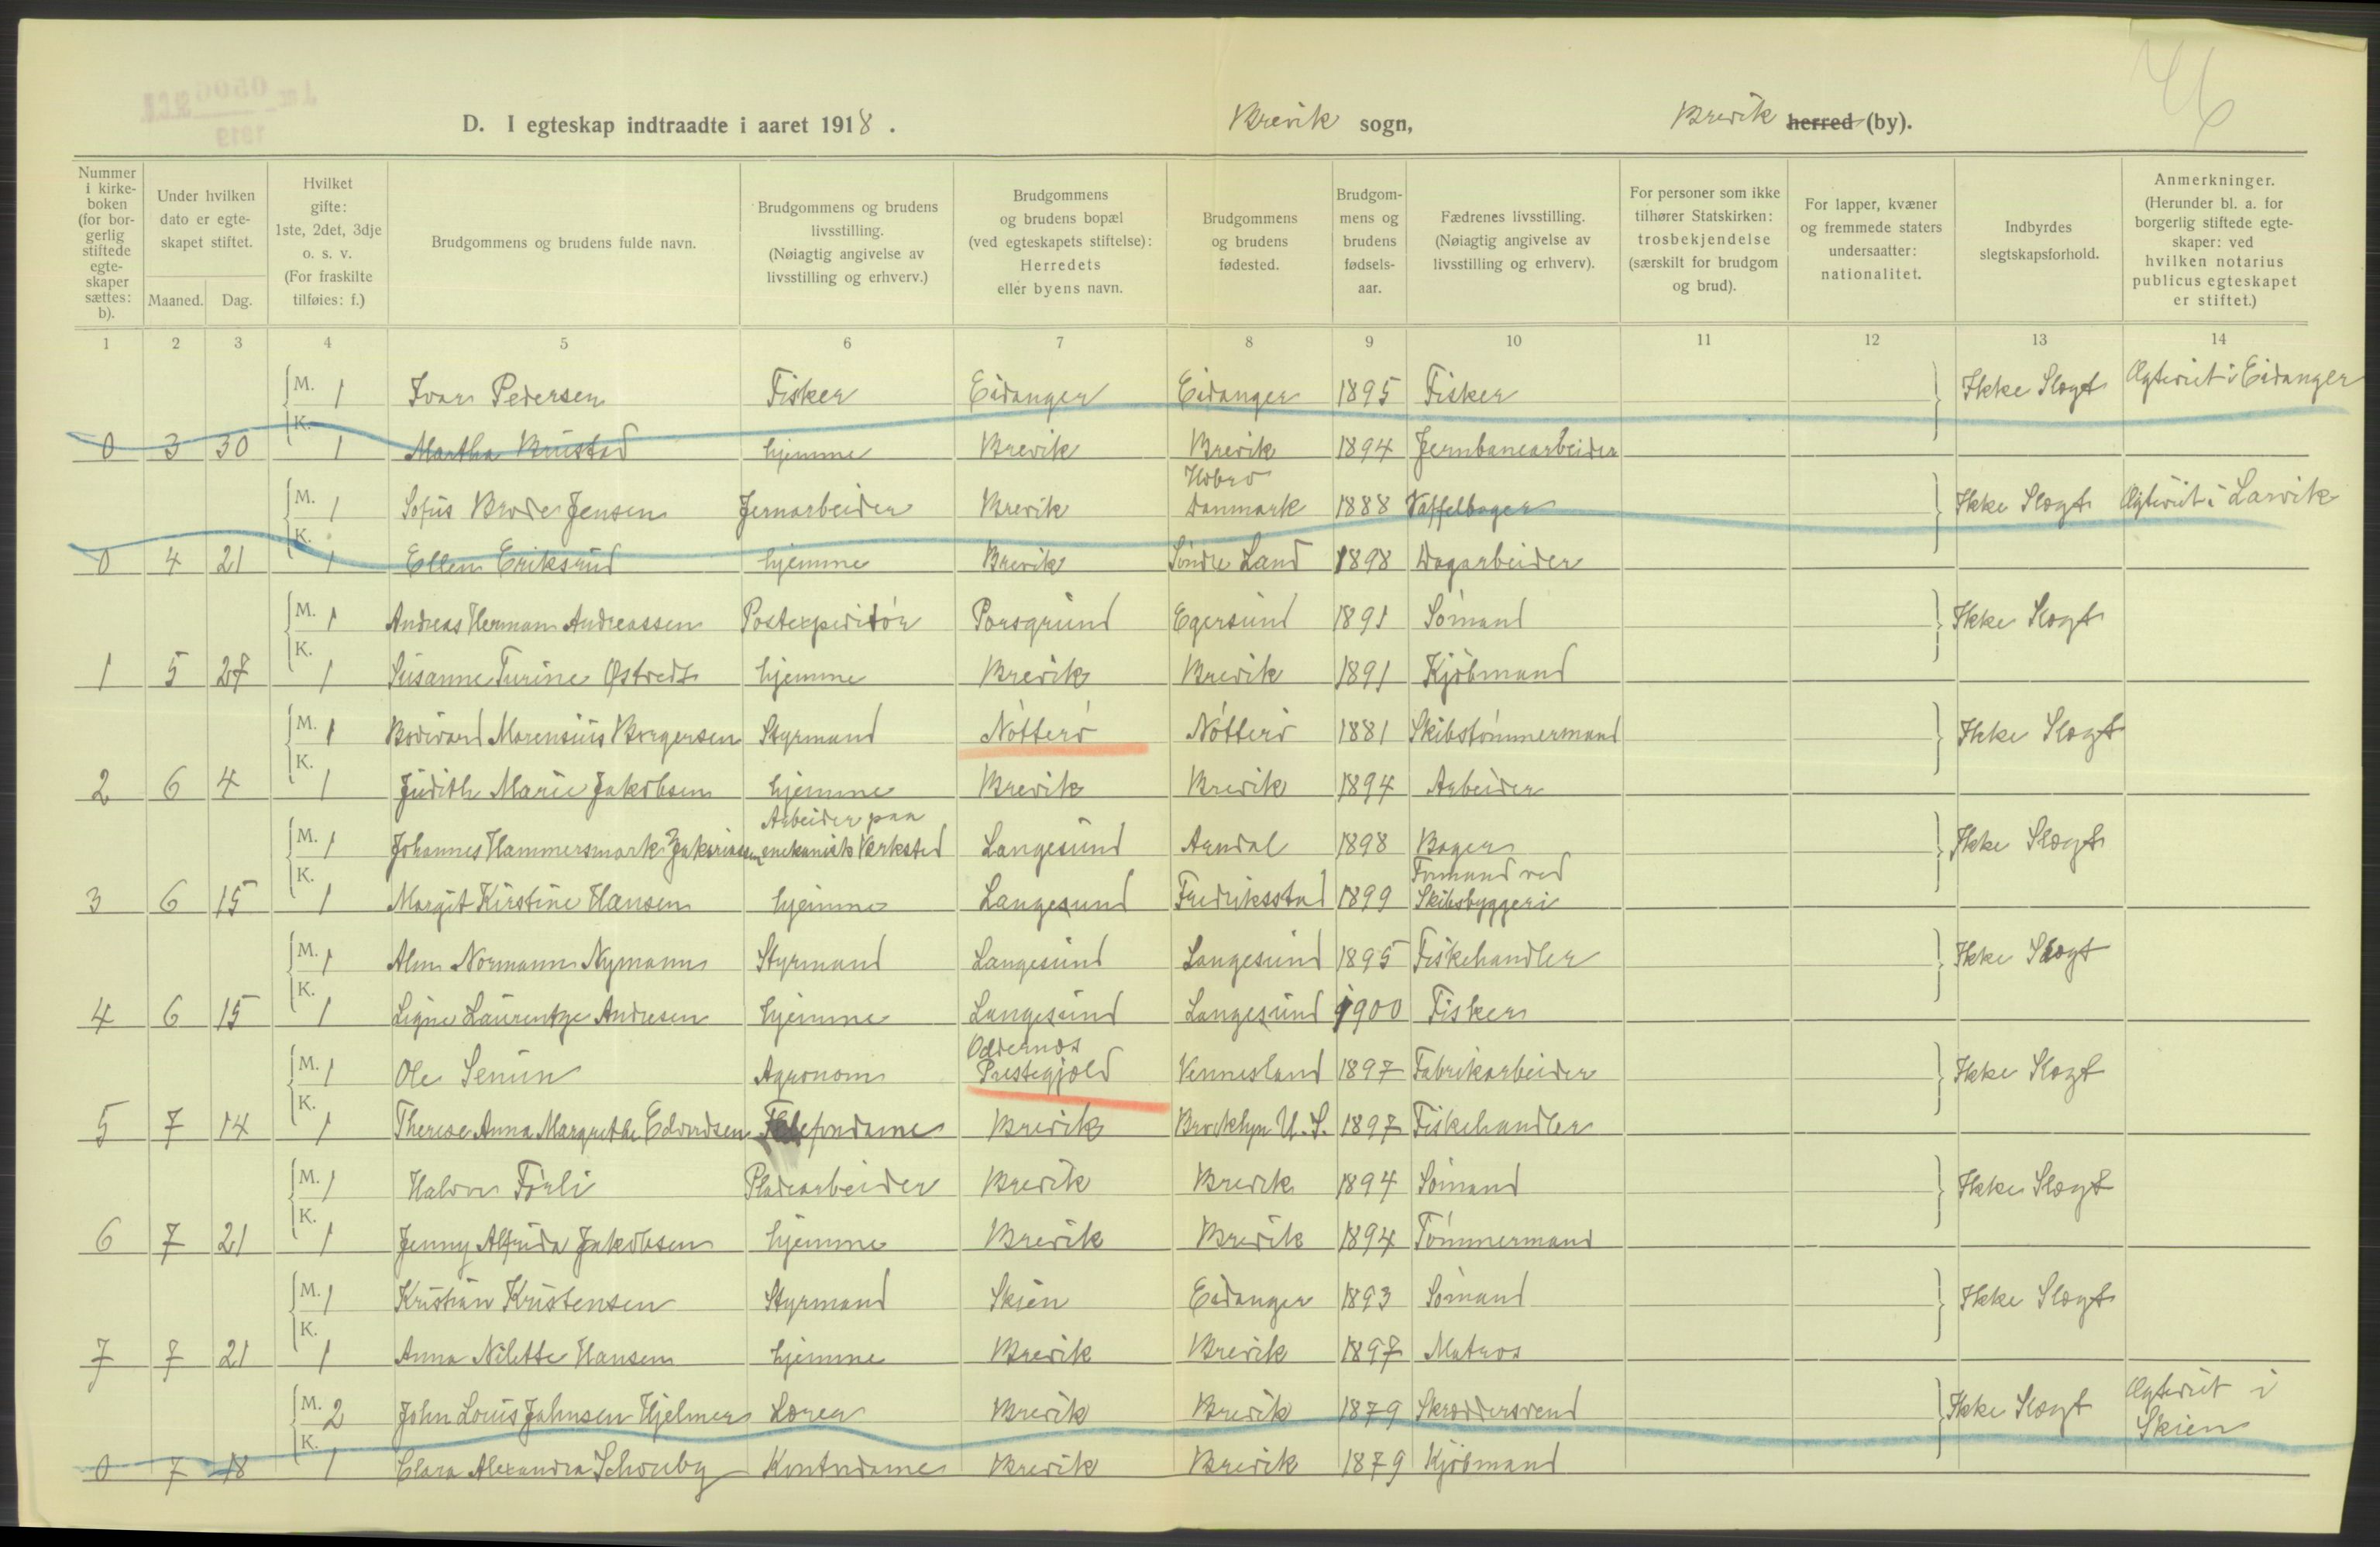 46
D. I egteskap indtraadte i aaret 1918. Brevik sogn, Brevik herred (by).
Nummer i kirkeboken (for borgerlig stiftede egteskaper sættes: b).
Under hvilken dato er egteskapet stiftet.
Maaned. Dag.
Hvilket gifte: 1ste, 2det, 3dje o. s. v. (For fraskilte tilføies: f.)
Brudgommens og brudens fulde navn.
Brudgommens og brudens livsstilling. (Nøiagtig angivelse av livsstilling og erhverv.)
Brudgommens og brudens bopæl (ved egteskapets stiftelse): Herredets eller byens navn.
Brudgommens og brudens fødested.
Brudgommens og brudens fødselsaar.
Fædrenes livsstilling. (Nøiagtig angivelse av livsstilling og erhverv).
For personer som ikke tilhører Statskirken: trosbekjendelse (særskilt for brudgom og brud).
For lapper, kvæner og fremmede staters undersaatter: nationalitet.
Indbyrdes slegtskapsforhold.
Anmerkninger. (Herunder bl. a. for borgerlig stiftede egteskaper: ved hvilken notarius publicus egteskapet er stiftet.)
1 2 3 4 5 6 7 8 9 10 11 12 13 14
M. 1 Ivar Pedersen Fisker Eidanger Eidanger 1895 Fisker Ikke Slægt Ægteviet i Eidanger
0 3 30 K. 1 Martha Brustad hjemme Brevik Brevik 1894 Jernbanearbeider
M. 1 Sofus Brode Jensen Jernarbeider Brevik Hobro Danmark 1888 Vaffelbager Ikke Slægt Ægteviet i Larvik
0 4 21 K. 1 Ellen Eriksrud hjemme Brevik Søndre Land 1898 Dagarbeider
M. 1 Andreas Herman Andreassen Postexpeditør Porsgrund Egersund 1891 Sømand Ikke Slægt
1 5 27 K. 1 Susanne Turine Østvedt hjemme Brevik Brevik 1891 Kjøbmand
M. 1 Marensius Borgersen Styrmand Nøtterø Nøtterø 1881 Skibstømmermand Ikke Slægt
2 6 4 K. 1 Judith Marie Jakobsen hjemme Brevik Brevik 1894 Arbeider
M. 1 Johannes Hammersmark Zakariassen Arbeider paa mekanisk Verksted Langesund Arndal 1898 Bager Ikke Slægt
3 6 15 K. 1 Margit Kirstine Hansen hjemme Langesund Fredriksstad 1899 Formand ved Skibsbyggeri
M. 1 Alm Normann Nymann Styrmand Langesund Langesund 1895 Fiskehandler Ikke Slægt
4 6 15 K. 1 Signe Laurentze Andresen hjemme Langesund Langesund 1900 Fisker
M. 1 Ole Senum Agronom Oddernæs Prestegjæld Vennesland 1897 Fabrikarbeider Ikke Slægt
5 7 14 K. 1 Therese Anna Margrethe Edvardsen Telefondame Brevik Brooklyn U. S. 1897 Fiskehandler
M. 1 Halvor Førli Pladearbeider Brevik Brevik 1894 Sømand Ikke Slægt
6 7 21 K. 1 Jenny Alfrida Jakobsen hjemme Brevik Brevik 1894 Tømmermand
M. 1 Kristian Kristensen Styrmand Skien Eidanger 1893 Sømand Ikke Slægt
7 7 21 K. 1 Anna Nilette Hansen hjemme Brevik Brevik 1897 Matros
M. 2 John Louis Johnsen Hjelmer Lærer Brevik Brevik 1879 Skræddersvend Ikke Slægt Ægteviet i Skien
0 7 18 K. 1 Clara Alexandra Schouby Kontordame Brevik Brevik 1879 Kjøbmand